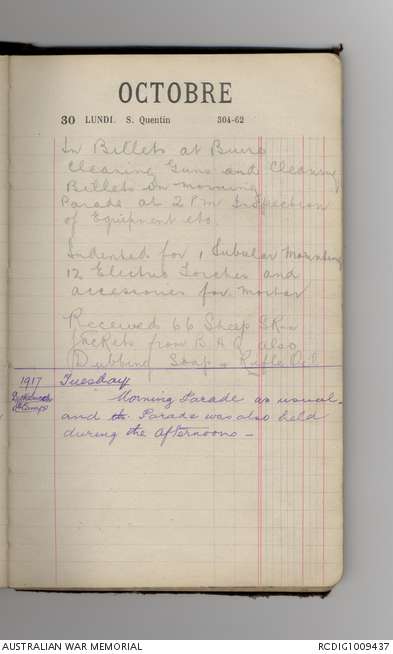 OCTOBRE
30 LUNDI. S. Quentin 304-62
In Billets at Buire
Cleaning Guns and Cleaning
Billets in morning
Parade at 2 PM Inspection
of Equipment etc
Indented for 1 Tubular Mounting
12 Electric Torches and
accessories for Mortar
Received 66 Sheep Skin
Jackets from B.A.Q. also
Dubbing Soap & Rifle Oil
1917
Tuesday
Camp
Morning Parade as usual-
and the Parade was also held
during the Afternoons -
AUSTRALIAN WAR MEMORIAL
RCDIG1009437